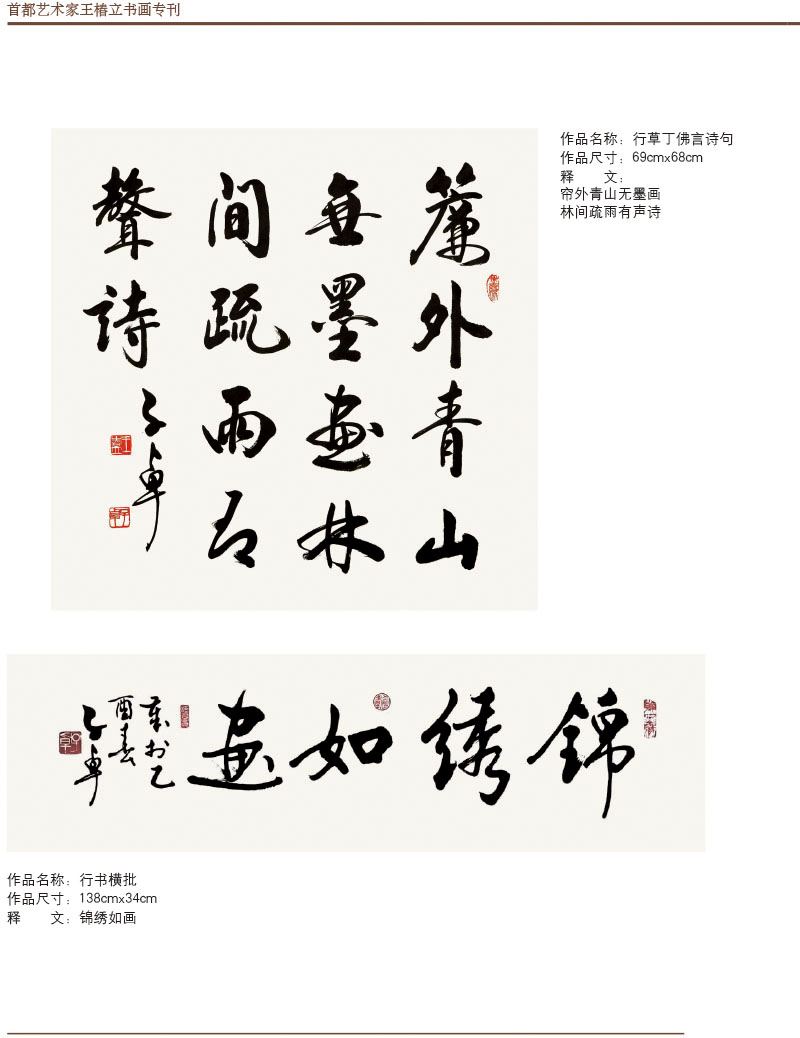 首都艺术家王椿立书画专刊
簾外青山
無墨畫林
間疏雨有
聲詩
子卓
作品名称：行草丁佛言诗句
作品尺寸：69cmx68cm
释　　文：
帘外青山无墨画
林间疏雨有声诗
锦绣如画
岁於乙
酉春
子卓
作品名称：行书横批
作品尺寸：138cmx34cm
释　　文：锦绣如画